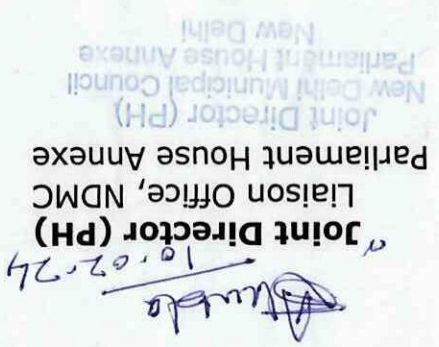 10.02.24
Joint Director (PH)
Liaison Office, NDMC
Parliament House Annexe
Joint Director (PH)
New Delhi Municipal Council
Parliament House Annexe
New Delhi